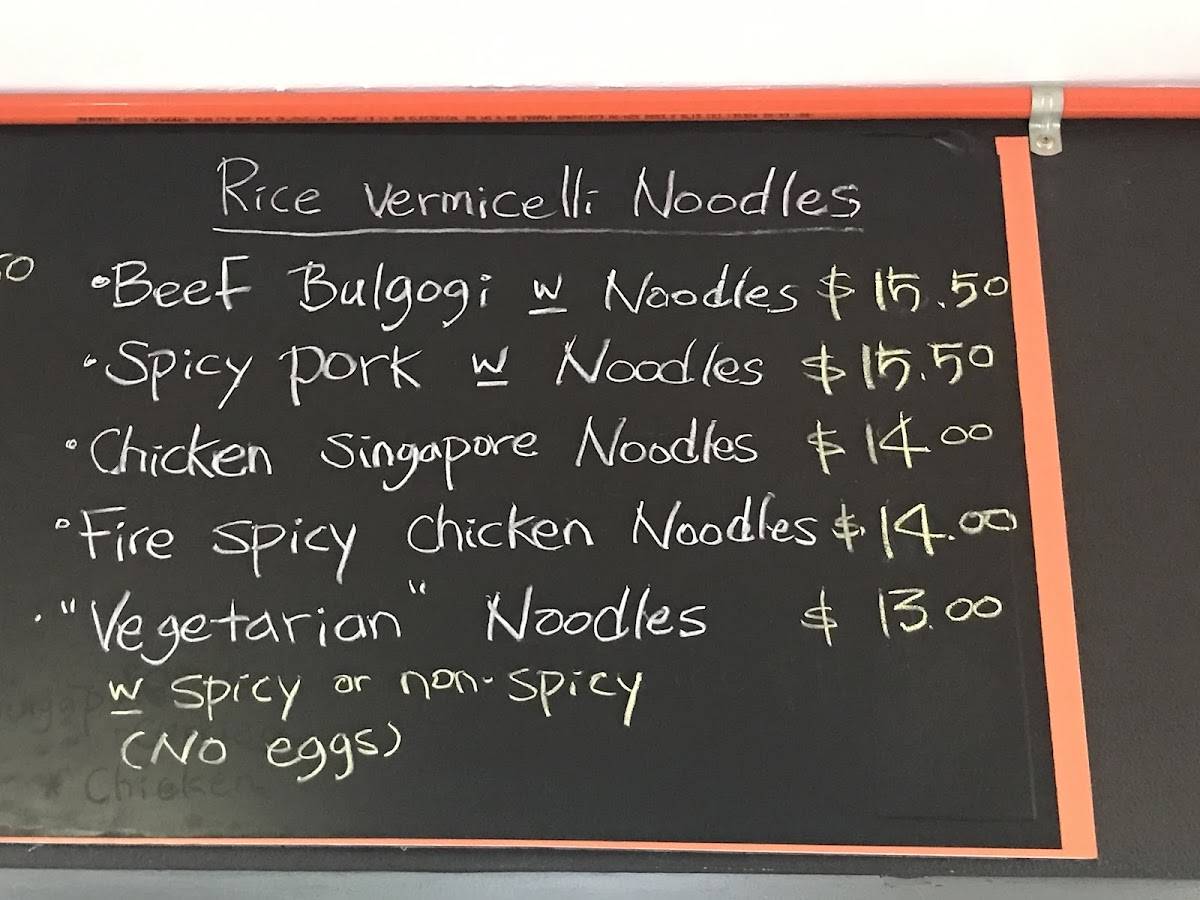 Rice Vermicelli Noodles
50
•Beef Bulgogi w Noodles $15.50
•Spicy pork w Noodles $15.50
•Chicken Singapore Noodles $14.00
•Fire spicy chicken Noodles $14.00
•"Vegetarian" Noodles $13.00
w spicy or non-spicy
(No eggs)
* Chicken